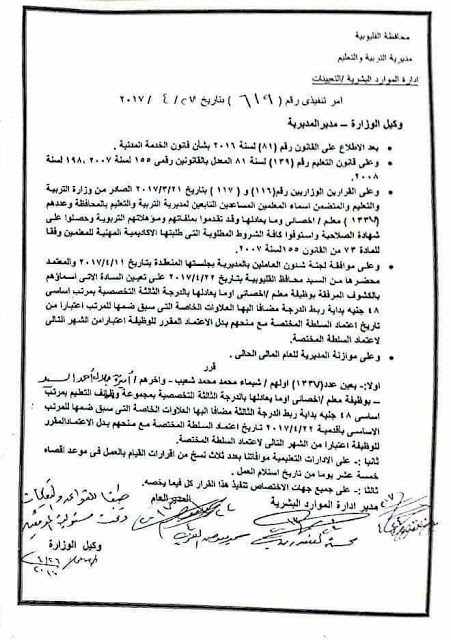 محافظة القليوبية
مديرية التربية والتعليم
ادارة الموارد البشرية /التعيينات
امر تنفيذى رقم ( ٦١٩ ) بتاريخ ٢٧/ ٤ / ٢٠١٧
وكيل الوزارة – مدير المديرية
• بعد الاطلاع على القانون رقم (٨١) لسنة ٢٠١٦ بشأن قانون الخدمة المدنية .
• وعلى قانون التعليم رقم (١٣٩) لسنة ٨١ المعدل بالقانونين رقمى ١٥٥ لسنة ٢٠٠٧ ,١٩٨ لسنة
٢٠٠٨.
• وعلى القرارين الوزاريين رقم (١١٦) و ( ١١٧ ) بتاريخ ٢٠١٧/٣/٢١ الصادر من وزارة التربية
والتعليم والمتضمن اسماء المعلمين المساعدين التابعين لمديرية التربية والتعليم بالمحافظة وعددهم
(١٣٣٧ ) معلم / اخصائى وما يعادلها وقد تقدموا بملفاتهم ومؤهلاتهم التربوية وحصلوا على
شهادة الصلاحية واستوفوا كافة الشروط المطلوبة التى طلبتها الاكاديمية المهنية للمعلمين وفقا
للمادة ٧٣ من القانون ١٥٥ لسنة ٢٠٠٧.
• وعلى موافقة لجنة شئون العاملين بالمديرية بجلستها المنعقدة بتاريخ ٢٠١٧/٤/١١ والمعتمد
محضرها من السيد محافظ القليوبية بتاريخ ٢٠١٧/٤/٢٢ على تعيين السادة الاتى اسماؤهم
بالكشوف المرفقة بوظيفة معلم /اخصائى اوما يعادلها بالدرجة الثالثة التخصصية بمرتب اساسى
٤٨ جنيه بداية ربط الدرجة مضافا اليها العلاوات الخاصة التى سبق ضمها للمرتب اعتبارا من
تاريخ اعتماد السلطة المختصة مع منحهم بدل الاعتماد المقرر للوظيفة اعتبارا من الشهر التالى
لاعتماد السلطة المختصة.
• وعلى موازنة المديرية للعام المالى الحالى .
قرر
اولا:- يعين عدد(١٣٣٧) اولهم / شيماء محمد محمد شعيب - واخرهم / أميرة جلال أحمد السيد
– بوظيفة معلم /اخصائى اوما يعادلها بالدرجة الثالثة التخصصية بمجموعة وظائف التعليم بمرتب
اساسى ٤٨ جنيه بداية ربط الدرجة الثالثة مضافا اليها العلاوات الخاصة التى سبق ضمها للمرتب
الاساسى بأقدمية ٢٠١٧/٤/٢٢ تاريخ اعتماد السلطة المختصة مع منحهم بدل الاعتماد المقرر
للوظيفة اعتبارا من الشهر التالى لاعتماد السلطة المختصة.
ثانيا :- على الادارات التعليمية موافاتنا بعدد ثلاث نسخ من اقرارات القيام بالعمل فى موعد اقصاه
خمسة عشر يوما من تاريخ استلام العمل .
ثالثا :- على جميع جهات الاختصاص تنفيذ هذا القرار كل فيما يخصه.
مدير ادارة الموارد البشرية
المدير العام
وكيل الوزارة